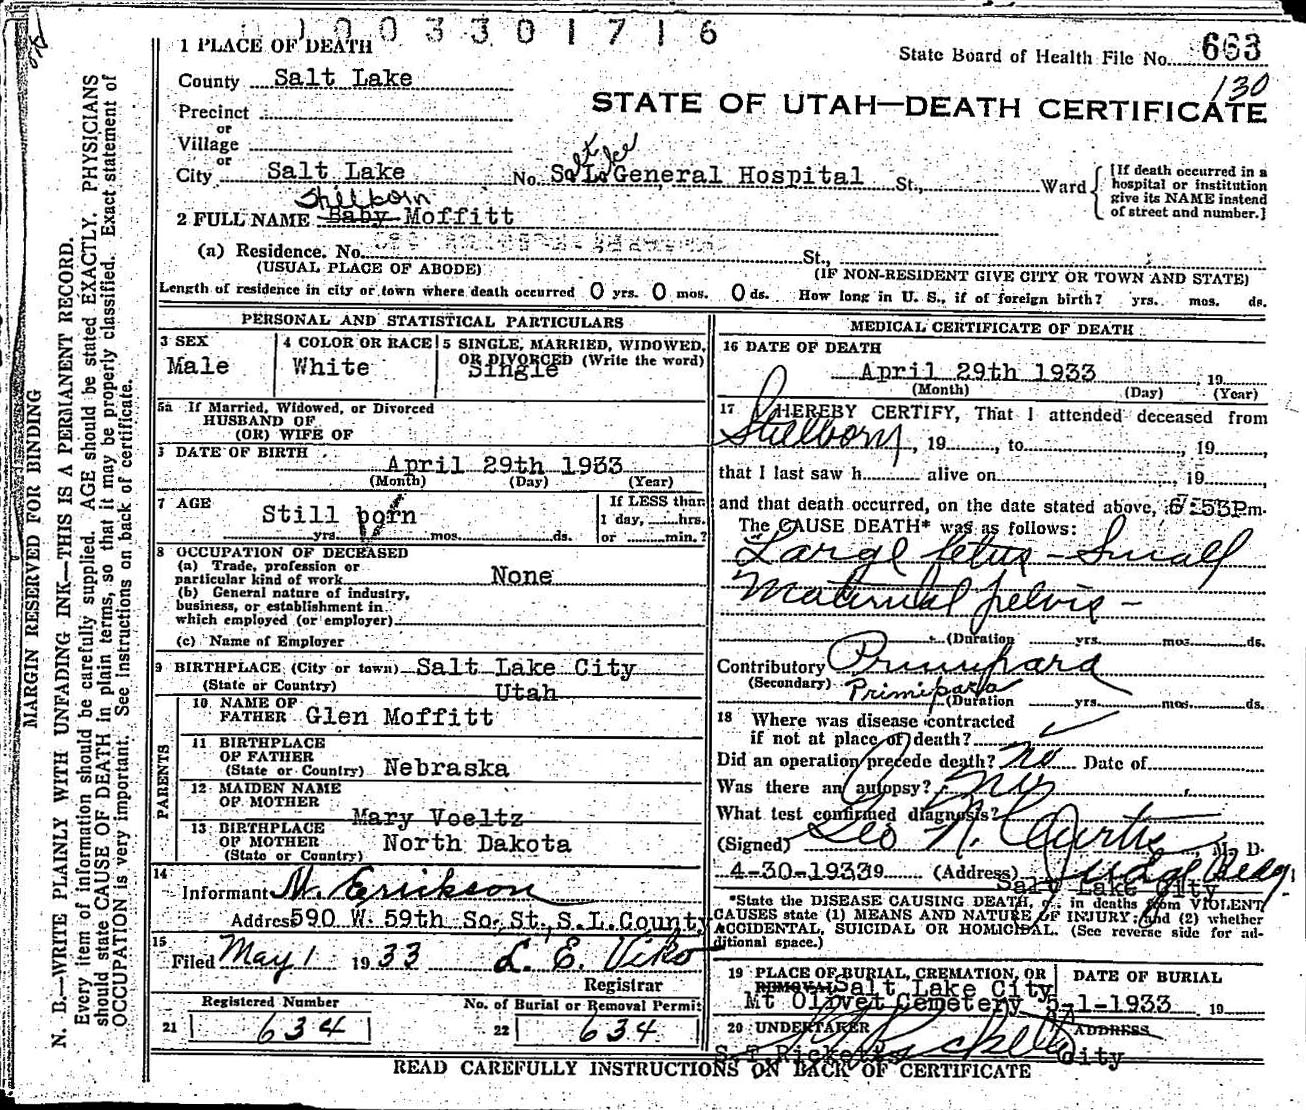 0 1 0 0 3 3 0 1 7 1 6
1 PLACE OF DEATH
State Board of Health File No. 663
130
County Salt Lake
STATE OF UTAH—DEATH CERTIFICATE
Precinct
or
Village
or
City Salt Lake No. So. L. General Hospital St., Ward
lt ke
[If death occurred in a
hospital or institution
give its NAME instead
of street and number.]
Stillborn
2 FULL NAME Baby Moffitt
(a) Residence. No. St.,
(USUAL PLACE OF ABODE) (IF NON-RESIDENT GIVE CITY OR TOWN AND STATE)
Length of residence in city or town where death occurred 0 yrs. 0 mos. 0 ds. How long in U. S., if of foreign birth? yrs. mos. ds.
PERSONAL AND STATISTICAL PARTICULARS
3 SEX
Male
4 COLOR OR RACE
White
5 SINGLE, MARRIED, WIDOWED,
OR DIVORCED (Write the word)
Single
5a If Married, Widowed, or Divorced
HUSBAND OF
(OR) WIFE OF
DATE OF BIRTH
April 29th 1933
(Month) (Day) (Year)
7 AGE
Still born
yrs. mos. ds.
If LESS than
1 day, hrs.
or min.?
8 OCCUPATION OF DECEASED
(a) Trade, profession or
particular kind of work None
(b) General nature of industry,
business, or establishment in
which employed (or employer)
(c) Name of Employer
9 BIRTHPLACE (City or town) Salt Lake City
(State or Country) Utah
PARENTS
10 NAME OF
FATHER Glen Moffitt
11 BIRTHPLACE
OF FATHER
(State or Country) Nebraska
12 MAIDEN NAME
OF MOTHER
Mary Voeltz
13 BIRTHPLACE
OF MOTHER North Dakota
(State or Country)
14
Informant M. Erikson
Address 590 W. 59th So. St., S.L. County
15
Filed May 1 1933 L. E. Viko
Registrar
Registered Number
21 634
No. of Burial or Removal Permit
22 634
MEDICAL CERTIFICATE OF DEATH
16 DATE OF DEATH
April 29th 1933 19
(Month) (Day) (Year)
17 I HEREBY CERTIFY, That I attended deceased from
Stillborn, 19 , to , 19 ,
that I last saw h alive on , 19 ,
and that death occurred, on the date stated above, 6:53P m.
The CAUSE DEATH* was as follows:
Large fetus - Small
Maternal pelvis -
(Duration yrs. mos. ds.
Contributory Primipara
(Secondary) Primipara
(Duration yrs. mos. ds.
18 Where was disease contracted
if not at place of death?
Did an operation precede death? no Date of
Was there an autopsy?
What test confirmed diagnosis?
(Signed) Geo N. Curtis, M. D.
4-30-1933 19 (Address) Judge Bldg.
Salt Lake City
*State the DISEASE CAUSING DEATH, or in deaths from VIOLENT
CAUSES state (1) MEANS AND NATURE OF INJURY; and (2) whether
ACCIDENTAL, SUICIDAL OR HOMICIDAL. (See reverse side for ad-
ditional space.)
19 PLACE OF BURIAL, CREMATION, OR
REMOVAL Salt Lake City
Mt Olivet Cemetery
DATE OF BURIAL
5-1-1933 19
20 UNDERTAKER
S.T. Ricketts
ADDRESS
City
READ CAREFULLY INSTRUCTIONS ON BACK OF CERTIFICATE
MARGIN RESERVED FOR BINDING
N. B.—WRITE PLAINLY WITH UNFADING INK—THIS IS A PERMANENT RECORD.
Every item of information should be carefully supplied. AGE should be stated EXACTLY. PHYSICIANS
should state CAUSE OF DEATH in plain terms, so that it may be properly classified. Exact statement of
OCCUPATION is very important. See instructions on back of certificate.